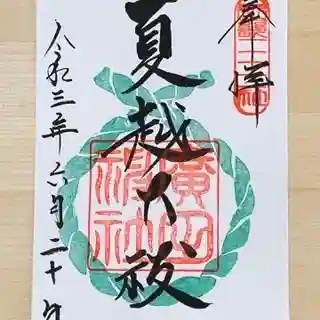 奉拝
夏越大祓
廣田神社
令和三年六月二十